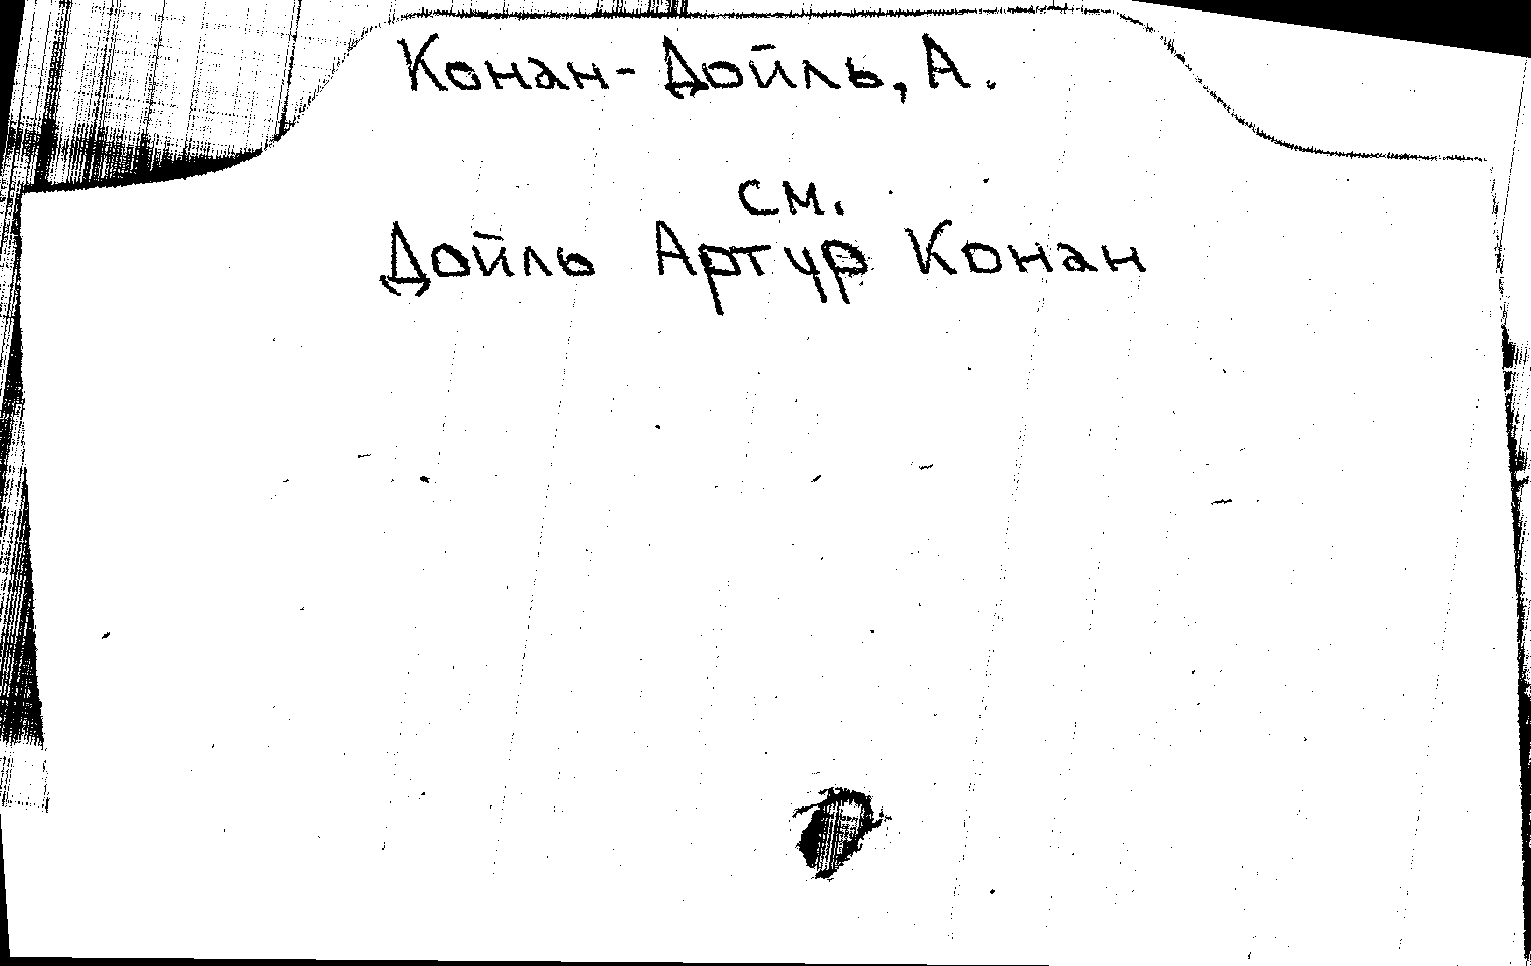 Конан-Дойль, А.
см.
Дойль Артур Конан